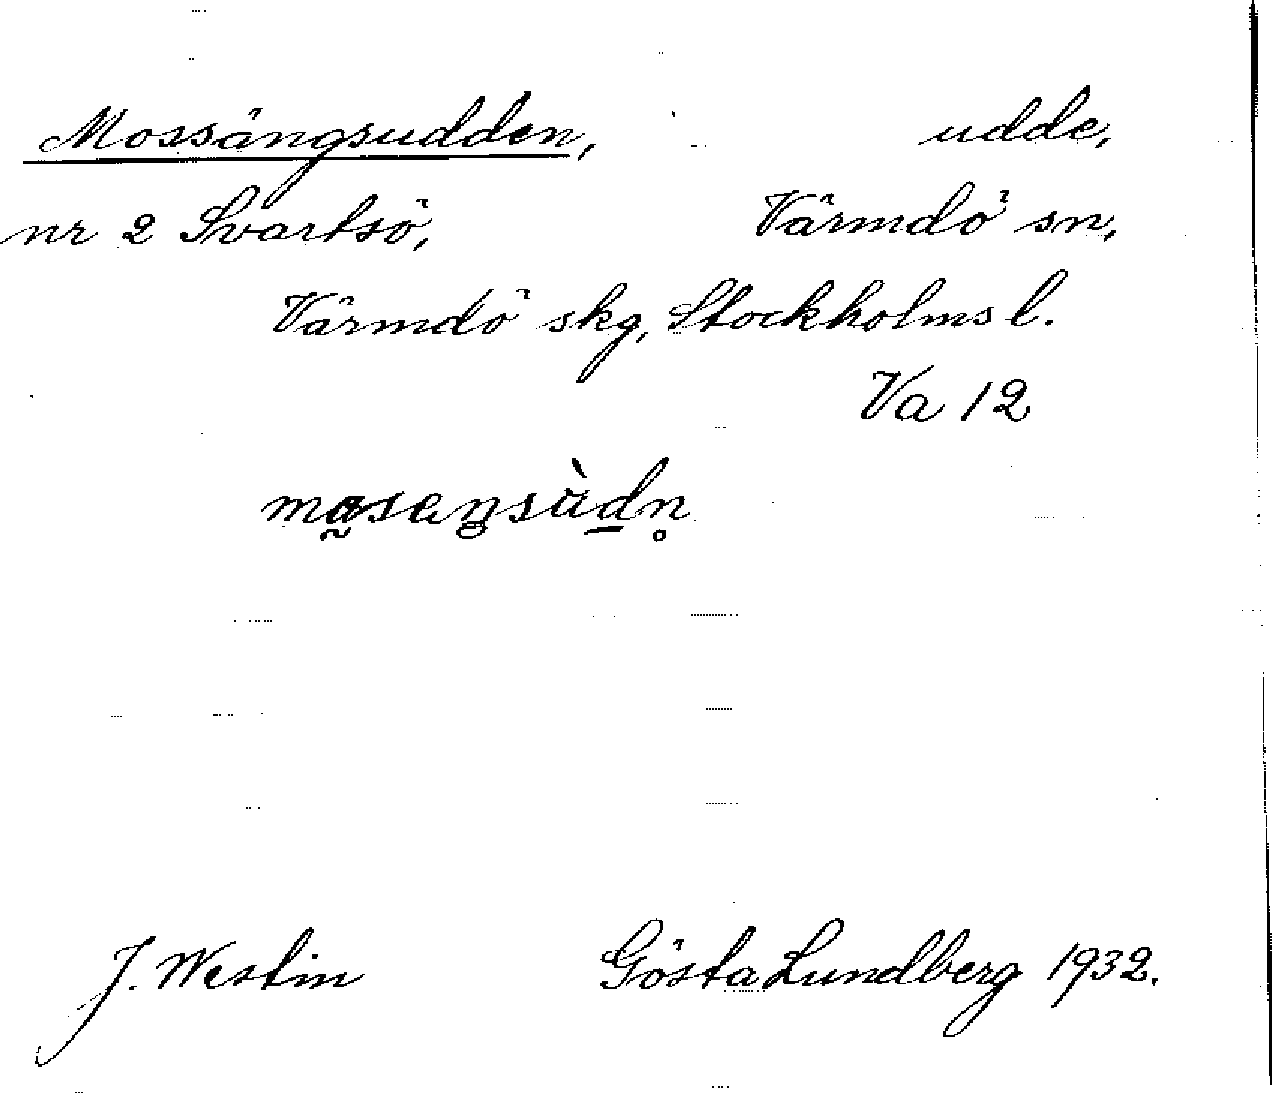 Mossängsudden, udde,
nr 2 Svartsö, Värmdö sn,
Värmdö skg, Stockholms l.
Va 12
J. Westin Gösta Lundberg 1932.